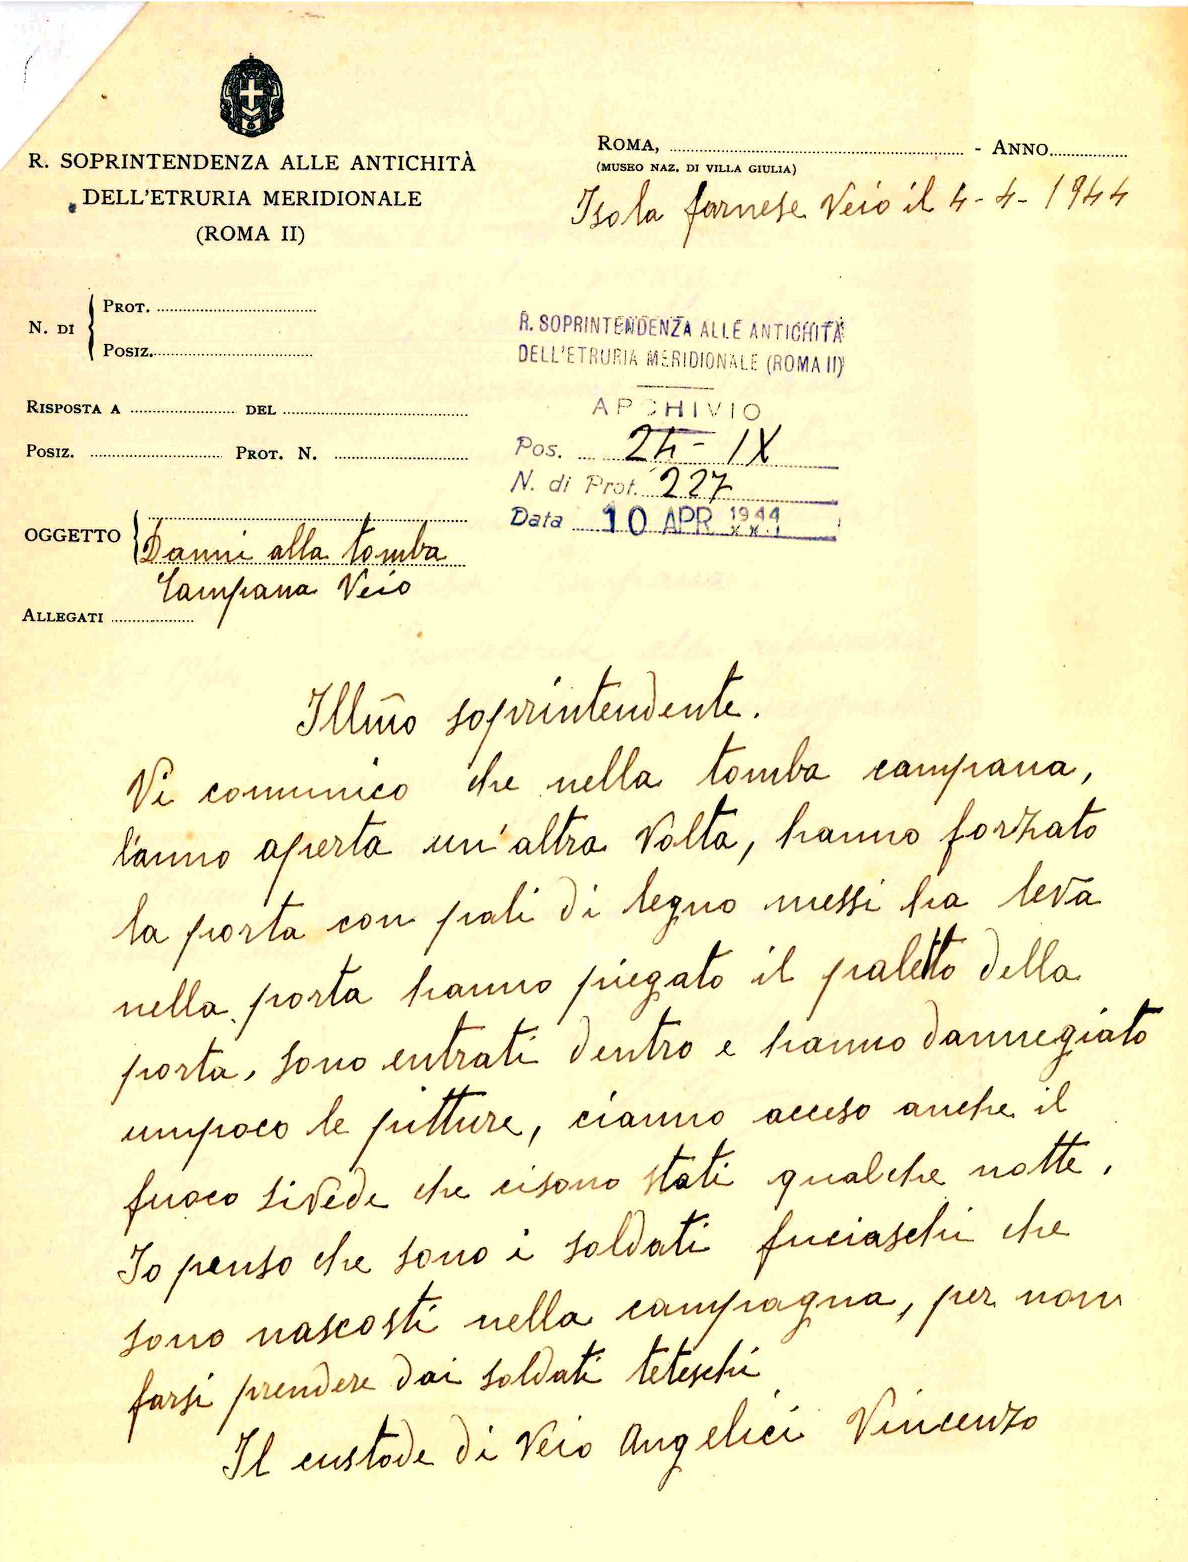 R. SOPRINTENDENZA ALLE ANTICHITÀ
DELL'ETRURIA MERIDIONALE
(ROMA II)
ROMA, - ANNO
(MUSEO NAZ. DI VILLA GIULIA)
Isola farnese Veio il 4-4-1944
N. DI
PROT.
POSIZ.
RISPOSTA A DEL
POSIZ. PROT. N.
R. SOPRINTENDENZA ALLE ANTICHITÀ
DELL'ETRURIA MERIDIONALE (ROMA II)
ARCHIVIO
Pos. 24-IX
N. di Prot. 227
Data 10 APR 1944
OGGETTO
Danni alla tomba
Campana Veio
ALLEGATI
Illm̃o soprintendente.
Vi comunico che nella tomba campana,
l'anno aperta un'altra volta, hanno forzato
la porta con pali di legno messi ha leva
nella porta hanno piegato il paletto della
porta, sono entrati dentro e hanno dannegiato
umpoco le pitture, cianno acceso anche il
fuoco sivede che cisono stati qualche notte.
Io penso che sono i soldati fuciaschi che
sono nascosti nella campagna, per non
farsi prendere dai soldati teteschi
Il custode di Veio Angelici Vincenzo